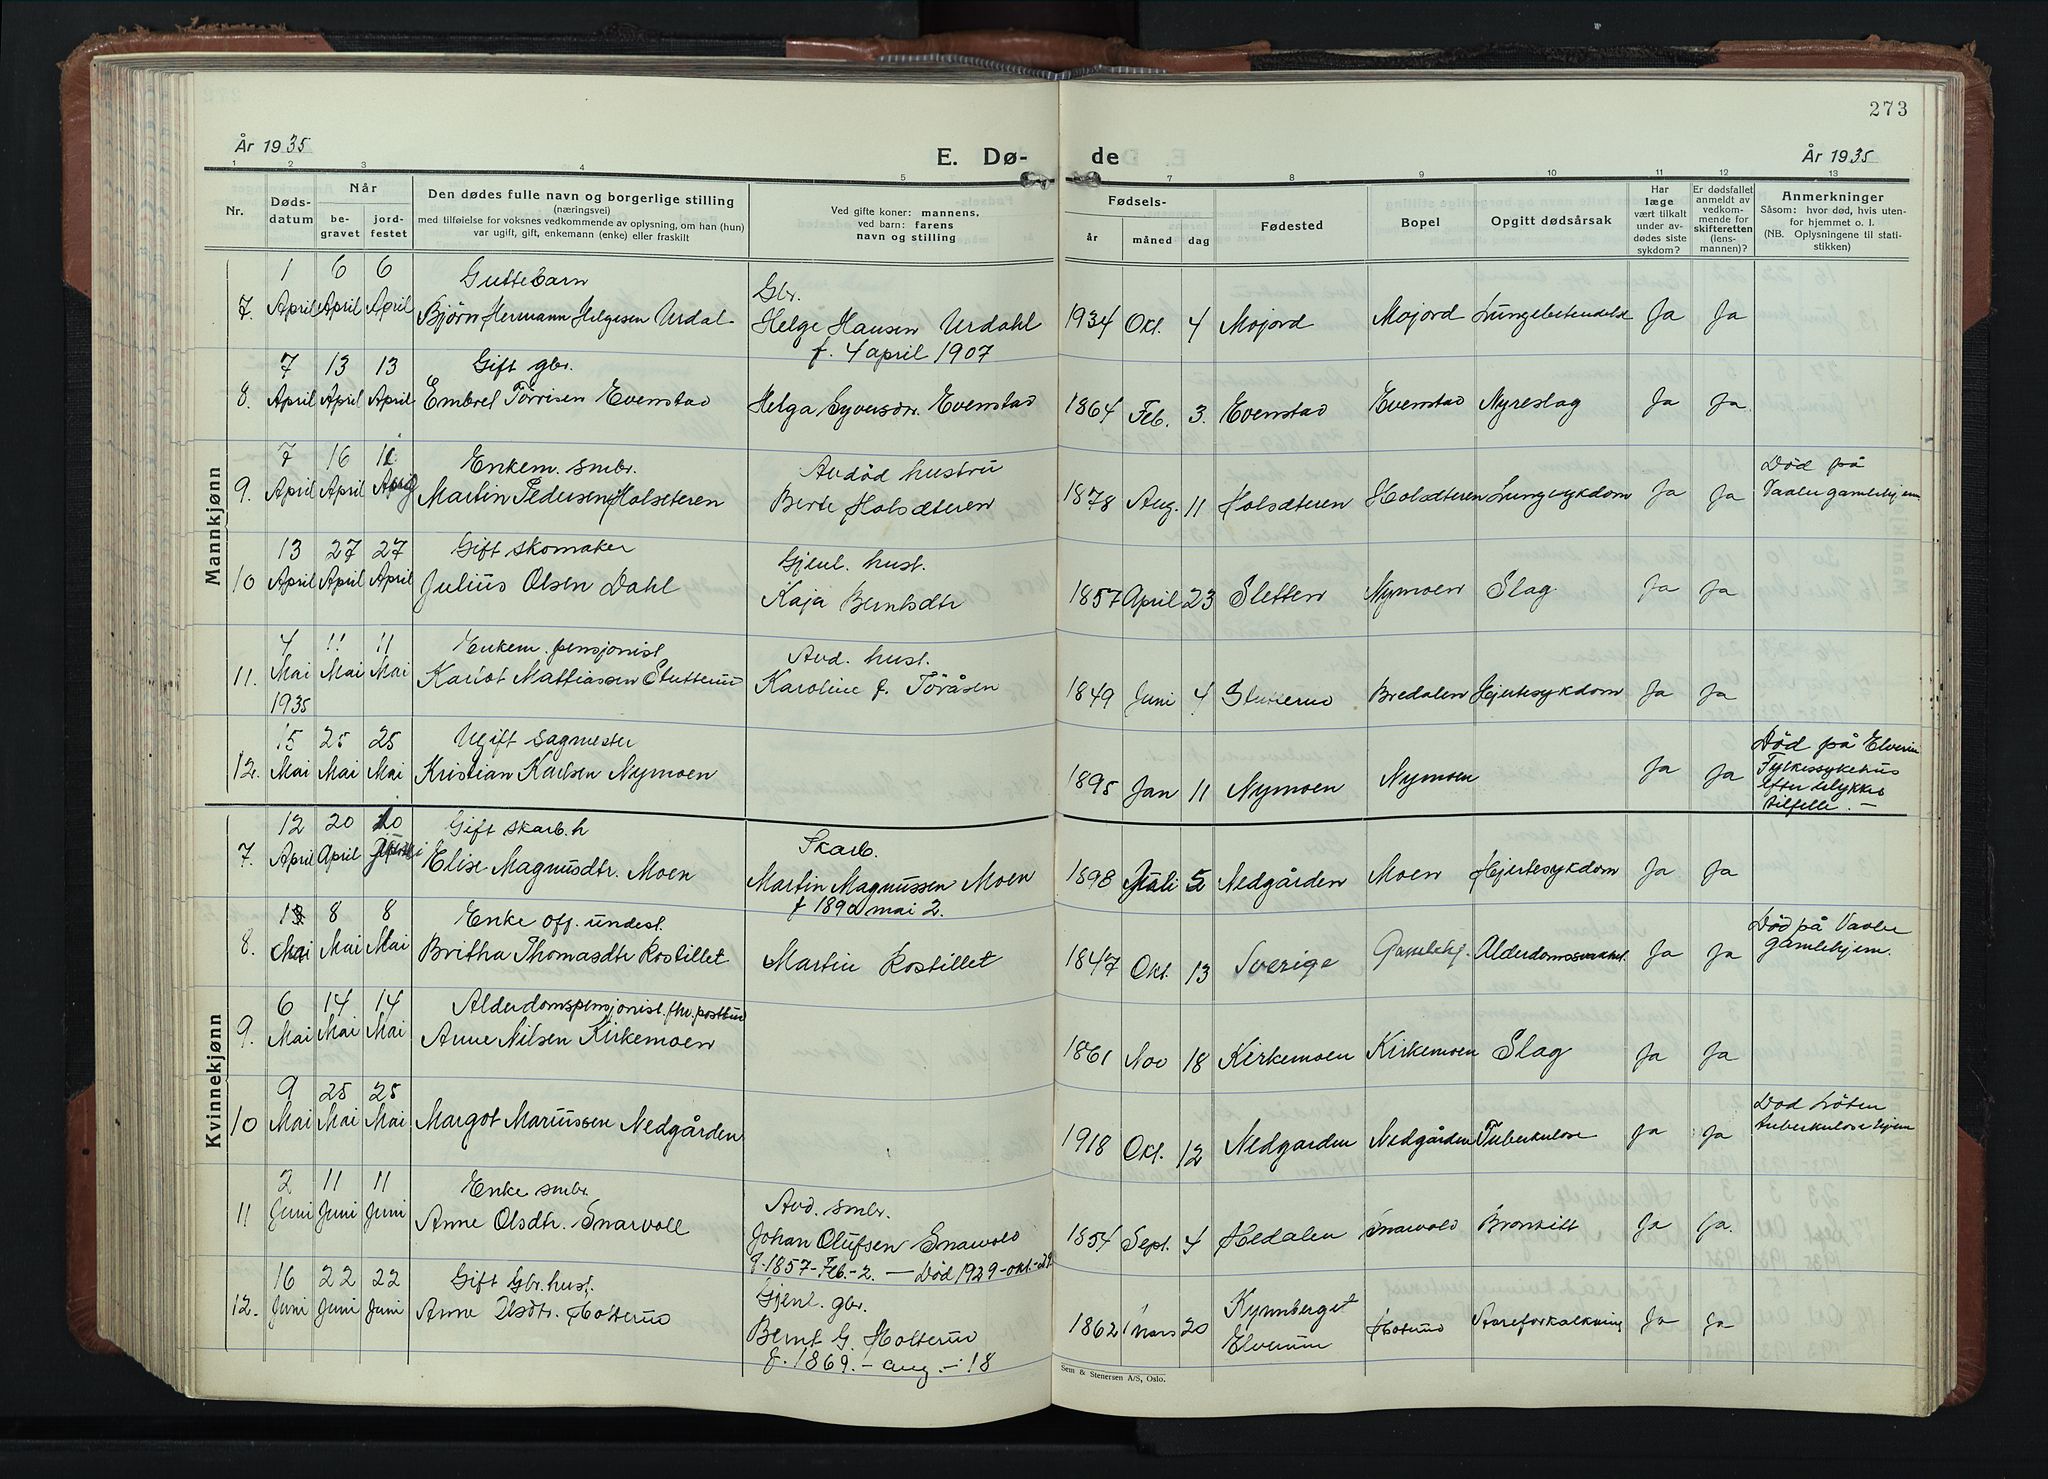 273
År 1935
E. Dø-
de
År 1935
1 2 3 4 5 7 8 9 10 11 12 13
Nr.
Døds-
datum
Når
be-
gravet
jord-
festet
Den dødes fulle navn og borgerlige stilling
(næringsvei)
med tilføielse for voksnes vedkommende av oplysning, om han (hun)
var ugift, gift, enkemann (enke) eller fraskilt
Ved gifte koner: mannens,
ved barn: farens
navn og stilling
Fødsels-
år måned dag
Fødested
Bopel
Opgitt dødsårsak
Har
læge
vært tilkalt
under av-
dødes siste
sykdom?
Er dødsfallet
anmeldt av
vedkom-
mende for
skifteretten
(lens-
mannen)?
Anmerkninger
Såsom: hvor død, hvis uten-
for hjemmet o. l.
(NB. Oplysningene til stati-
stikken)
Mannkjønn
1 6 6 Guttebarn Gbr.
7. April April April Bjørn Hermann Helgesen Urdal Helge Hansen Urdahl 1934 Okt. 4 Mojord Mojord Lungebetendelse Ja Ja
f. 4 april 1907
7 13 13 Gift gbr.
8. April April April Embret Tørrisen Evenstad Helga Syversdr. Evenstad 1864 Feb. 3. Evenstad Evenstad Nyreslag Ja Ja.
7 16 Enkem. smbr. Avdød hustru Død på
9. April April April Martin Pedersen Holseteren Berte Holsæteren 1878 Aug. 11 Holsæteren Holsæteren Lungesykdom Ja Ja Vaaler gamlehjem
13 27 27 Gift skomaker Gjenl. hust.
10 April April April Julius Olsen Dahl Kaja Berntsdtr 1857 April 23 Sletten Nymoen Slag Ja Ja
4 11 11 Enkem. pensjonist Avd. hust.
11. Mai Mai Mai Karlot Mattiassen Stutterud Karoline f. Töråsen 1849 Juni 4 Stutterud Bredalen Hjertesykdom Ja Ja
1935
15 25 25 Ugift sagmester Død på Elverum
12. Mai Mai Mai Kristian Karlsen Nymoen 1895 Jan 11 Nymoen Nymoen Ja Ja Fylkessykehus
efter ulykkes
tilfelle. —
Kvinnekjønn
12 20 Gift skarb.h Skarb.
7. April April Elise Magnusdtr. Moen Martin Magnussen Moen 1898 Juli 5 Nedgården Moen Hjertesykdom Ja Ja
f 1890 mai 2.
8 8 Enke off. underst. Død på Vaaler
8. Mai Mai Mai Britha Thomasdtr Rostillet Martin Rostillet 1847 Okt. 13 Sverige Gamlehj. Alderdomssvakhet. Ja Ja gamlehjem.
6 14 14 Alderdomspensjonist fhv. postbud
9. Mai Mai Mai Anne Nilsen Kirkemoen 1861 Nov 18 Kirkemoen Kirkemoen Slag Ja Ja
9 25 25 Død Löten
10 Mai Mai Mai Margot Mariussen Nedgården 1918 Okt. 12 Nedgarden Nedgården Tuberkulose Ja Ja tuberkulosehjem
2 11 11 Enke smbr. Avd. smbr.
11 Juni Juni Juni Anne Olsdtr. Snarvoll Johan Olufsen Snarvold 1854 Sept. 4 Hedalen Snarvold Bronkitt Ja Ja.
f. 1857 - Feb. - 2. — Död 1929 - okt. - 28
16 22 22 Gift Gbr. hust. Gjenl. gbr. Kynnberget
12. Juni Juni Juni Anne Olsdtr. Holterud Bernt G. Holterud 1862 Mars 20 Elverum Holterud Aareforkalkning Ja Ja
f. 1869. - aug. - 18
Sem & Stenersen A/S, Oslo.